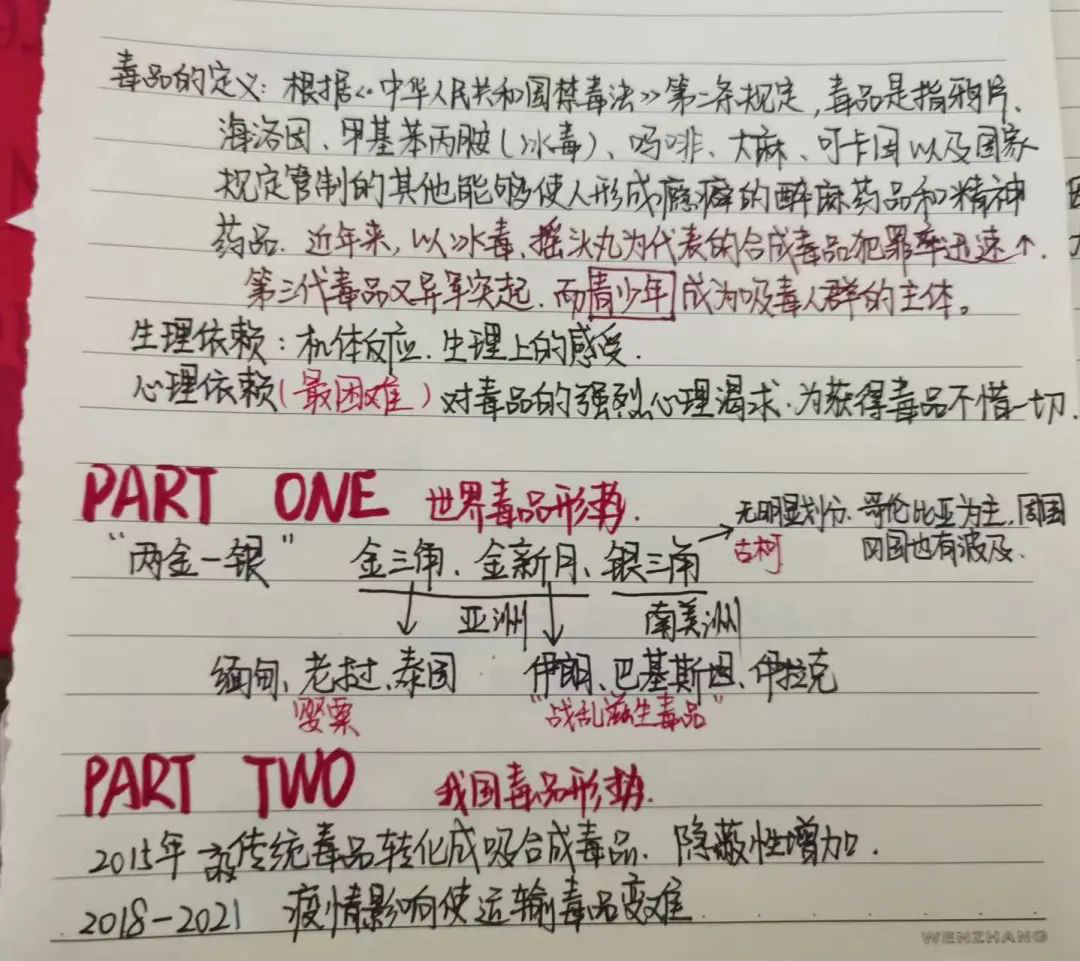 毒品的定义：根据《中华人民共和国禁毒法》第二条规定，毒品是指鸦片、
海洛因、甲基苯丙胺（冰毒）、吗啡、大麻、可卡因以及国家
规定管制的其他能够使人形成瘾癖的醉麻药品和精神
药品．近年来，以冰毒、摇头丸为代表的合成毒品犯罪率迅速↑．
第三代毒品又异军突起．而青少年成为吸毒人群的主体。
生理依赖：机体反应．生理上的感受．
心理依赖（最困难）对毒品的强烈心理渴求．为获得毒品不惜一切．
PART ONE 世界毒品形势．
→无明显划分．哥伦比亚为主，周围
古柯 四国也有波及．
“两金一银” 金三角、金新月、银三角
亚洲 南美洲
缅甸、老挝、泰国 伊朗、巴基斯坦、伊拉克
罂粟 “战乱滋生毒品”
PART TWO 我国毒品形势．
2015年 传统毒品转化成吸合成毒品．隐蔽性增加．
2018-2021 疫情影响使运输毒品变难
WENZHANG